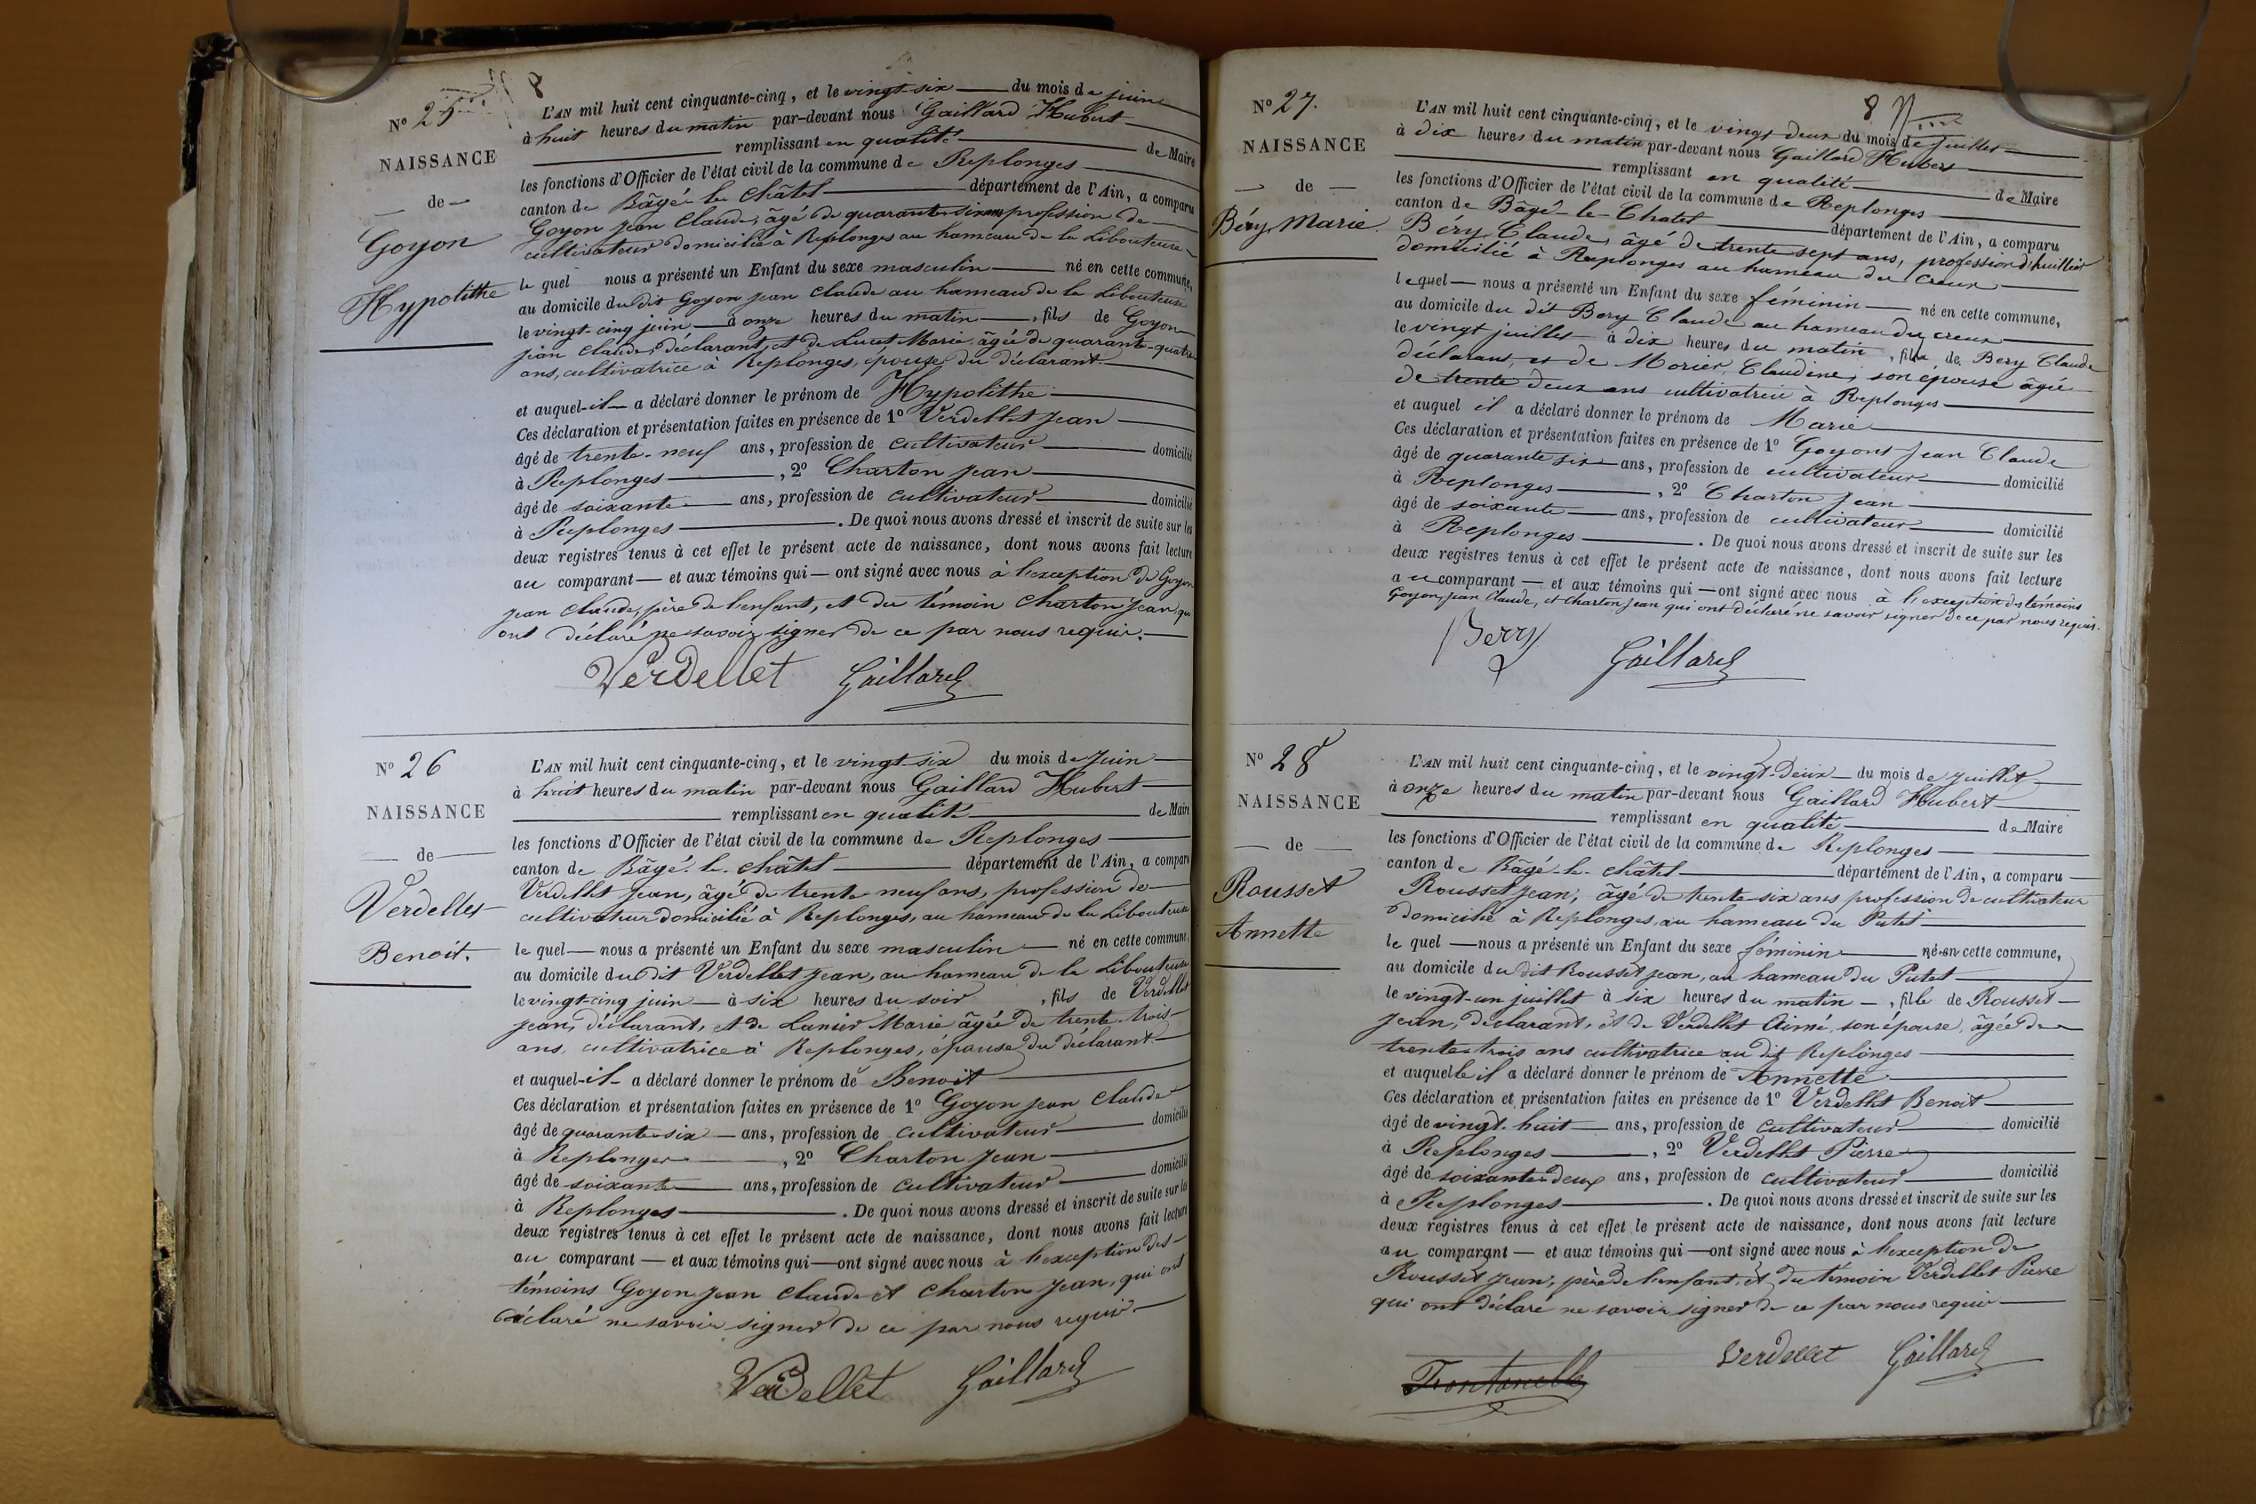 8
N° 25
NAISSANCE
de
Goyon
Hypolithe
L'AN mil huit cent cinquante-cinq, et le vingt-six du mois de juin
à huit heures du matin par-devant nous Gaillard Hubert
remplissant en qualité de Maire
les fonctions d'Officier de l'état civil de la commune de Replonges
canton de Bâgé-le-Châtel département de l'Ain, a comparu
Goyon Jean Claude, âgé de quarante-six ans profession de
cultivateur domicilié à Replonges au hameau de la Libouteuse
le quel nous a présenté un Enfant du sexe masculin né en cette commune,
au domicile du dit Goyon Jean Claude au hameau de la Libouteuse
le vingt-cinq juin à onze heures du matin, fils de Goyon
Jean Claude, déclarant, et de Luset Marie, âgée de quarante-quatre
ans, cultivatrice à Replonges, épouse du déclarant.
et auquel il a déclaré donner le prénom de Hypolithe
Ces déclaration et présentation faites en présence de 1° Verdellet Jean
âgé de trente-neuf ans, profession de cultivateur domicilié
à Replonges, 2° Charton Jean
âgé de soixante ans, profession de cultivateur domicilié
à Replonges. De quoi nous avons dressé et inscrit de suite sur les
deux registres tenus à cet effet le présent acte de naissance, dont nous avons fait lecture
au comparant et aux témoins qui ont signé avec nous à l'exception de Goyon
Jean Claude, père de l'enfant, et du témoin Charton Jean qui
ont déclaré ne savoir signer de ce par nous requis.
Verdellet Gaillard
N° 26
NAISSANCE
de
Verdellet
Benoit.
L'AN mil huit cent cinquante-cinq, et le vingt-six du mois de Juin
à huit heures du matin par-devant nous Gaillard Hubert
remplissant en qualité de Maire
les fonctions d'Officier de l'état civil de la commune de Replonges
canton de Bâgé-le-Châtel département de l'Ain, a comparu
Verdellet Jean, âgé de trente-neuf ans, profession de
cultivateur domicilié à Replonges, au hameau de la Libouteuse
le quel nous a présenté un Enfant du sexe masculin né en cette commune,
au domicile du dit Verdellet Jean, au hameau de la Libouteuse
le vingt-cinq juin à six heures du soir, fils de Verdellet
Jean, déclarant, et de Lanier Marie âgée de trente-trois
ans, cultivatrice à Replonges, épouse du déclarant.
et auquel il a déclaré donner le prénom de Benoit
Ces déclaration et présentation faites en présence de 1° Goyon Jean Claude
âgé de quarante-six ans, profession de cultivateur domicilié
à Replonges, 2° Charton Jean
âgé de soixante ans, profession de cultivateur domicilié
à Replonges. De quoi nous avons dressé et inscrit de suite sur les
deux registres tenus à cet effet le présent acte de naissance, dont nous avons fait lecture
au comparant et aux témoins qui ont signé avec nous à l'exception des
témoins Goyon Jean Claude et Charton Jean, qui ont
déclaré ne savoir signer de ce par nous requis.
Verdellet Gaillard
8
N° 27.
NAISSANCE
de
Béry Marie.
L'AN mil huit cent cinquante-cinq, et le vingt deux du mois de Juillet
à dix heures du matin par-devant nous Gaillard Hubert
remplissant en qualité de Maire
les fonctions d'Officier de l'état civil de la commune de Replonges
canton de Bâgé-le-Chatel département de l'Ain, a comparu
Béry Claude, âgé de trente sept ans, profession d'huillier
domicilié à Replonges au hameau du Creux
lequel nous a présenté un Enfant du sexe féminin né en cette commune,
au domicile du dit Bery Claude au hameau du creux
le vingt juillet à dix heures du matin, fille de Bery Claude
déclarant, et de Morier Claudine, son épouse âgée
de trente deux ans cultivatrice à Replonges
et auquel il a déclaré donner le prénom de Marie
Ces déclaration et présentation faites en présence de 1° Goyon Jean Claude
âgé de quarante six ans, profession de cultivateur domicilié
à Replonges, 2° Charton Jean
âgé de soixante ans, profession de cultivateur domicilié
à Replonges. De quoi nous avons dressé et inscrit de suite sur les
deux registres tenus à cet effet le présent acte de naissance, dont nous avons fait lecture
au comparant et aux témoins qui ont signé avec nous à l'exception des témoins
Goyon Jean Claude, et Charton Jean qui ont déclaré ne savoir signer de ce par nous requis.
Berry Gaillard
N° 28
NAISSANCE
de
Rousset
Annette
L'AN mil huit cent cinquante-cinq, et le vingt-deux du mois de juillet
à onze heures du matin par-devant nous Gaillard Hubert
remplissant en qualité de Maire
les fonctions d'Officier de l'état civil de la commune de Replonges
canton de Bâgé-le-châtel département de l'Ain, a comparu
Rousset Jean, âgé de trente-six ans profession de cultivateur
domicilié à Replonges, au hameau du Putet
le quel nous a présenté un Enfant du sexe féminin né en cette commune,
au domicile du dit Rousset Jean, au hameau du Putet
le vingt-un juillet à six heures du matin, fille de Rousset
Jean, déclarant, et de Verdellet Aimé, son épouse, âgée de
trente-trois ans cultivatrice au dit Replonges
et auquelle il a déclaré donner le prénom de Annette
Ces déclaration et présentation faites en présence de 1° Verdellet Benoit
âgé de vingt-huit ans, profession de cultivateur domicilié
à Replonges, 2° Verdellet Pierre
âgé de soixante-deux ans, profession de cultivateur domicilié
à Replonges. De quoi nous avons dressé et inscrit de suite sur les
deux registres tenus à cet effet le présent acte de naissance, dont nous avons fait lecture
au comparant et aux témoins qui ont signé avec nous à l'exception de
Rousset Jean, père de l'enfant, et du témoin Verdellet Pierre
qui ont déclaré ne savoir signer de ce par nous requis
Verdellet Gaillard